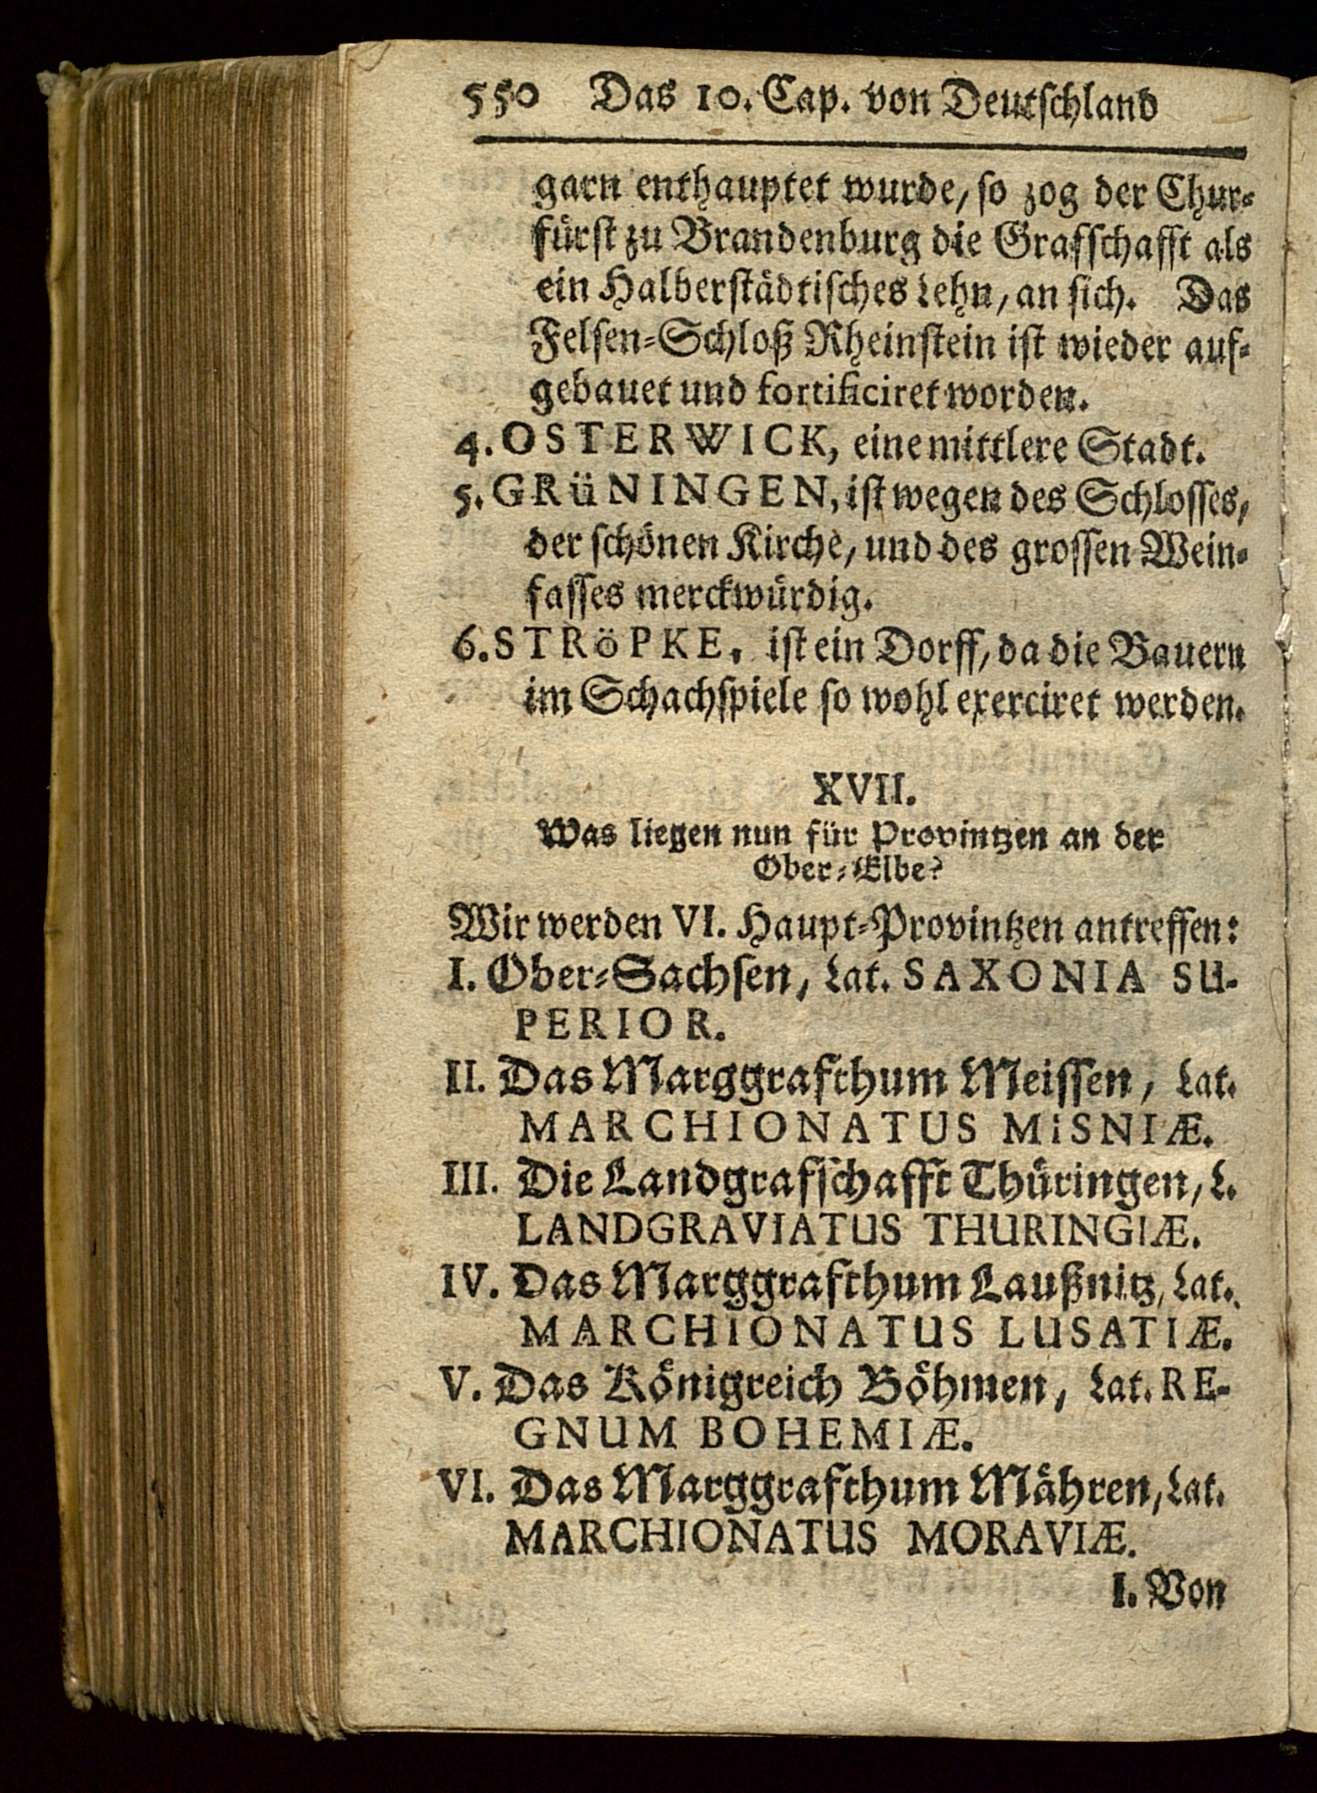 550 Das 10. Cap. von Deutschland
garn enthauptet wurde, so zog der Chur-
fürst zu Brandenburg die Grafschafft als
ein Halberstädtisches Lehn, an sich. Das
Felsen-Schloß Rheinstein ist wieder auf-
gebauet und fortificiret worden.
4. OSTERWICK, eine mittlere Stadt.
5. GRüNINGEN, ist wegen des Schlosses,
der schönen Kirche, und des grossen Wein-
fasses merckwürdig.
6. STRöPKE, ist ein Dorff, da die Bauern
im Schachspiele so wohl exerciret werden.
XVII.
Was liegen nun für Provintzen an der
Ober-Elbe?
Wir werden VI. Haupt-Provintzen antreffen:
I. Ober-Sachsen, Lat. SAXONIA SU-
PERIOR.
II. Das Marggrafthum Meissen, Lat.
MARCHIONATUS MiSNIÆ.
III. Die Landgrafschafft Thüringen, L.
LANDGRAVIATUS THURINGIÆ.
IV. Das Marggrafthum Laußnitz, Lat.
MARCHIONATUS LUSATIÆ.
V. Das Königreich Böhmen, Lat. RE-
GNUM BOHEMIÆ.
VI. Das Marggrafthum Mähren, Lat.
MARCHIONATUS MORAVIÆ.
I. Von